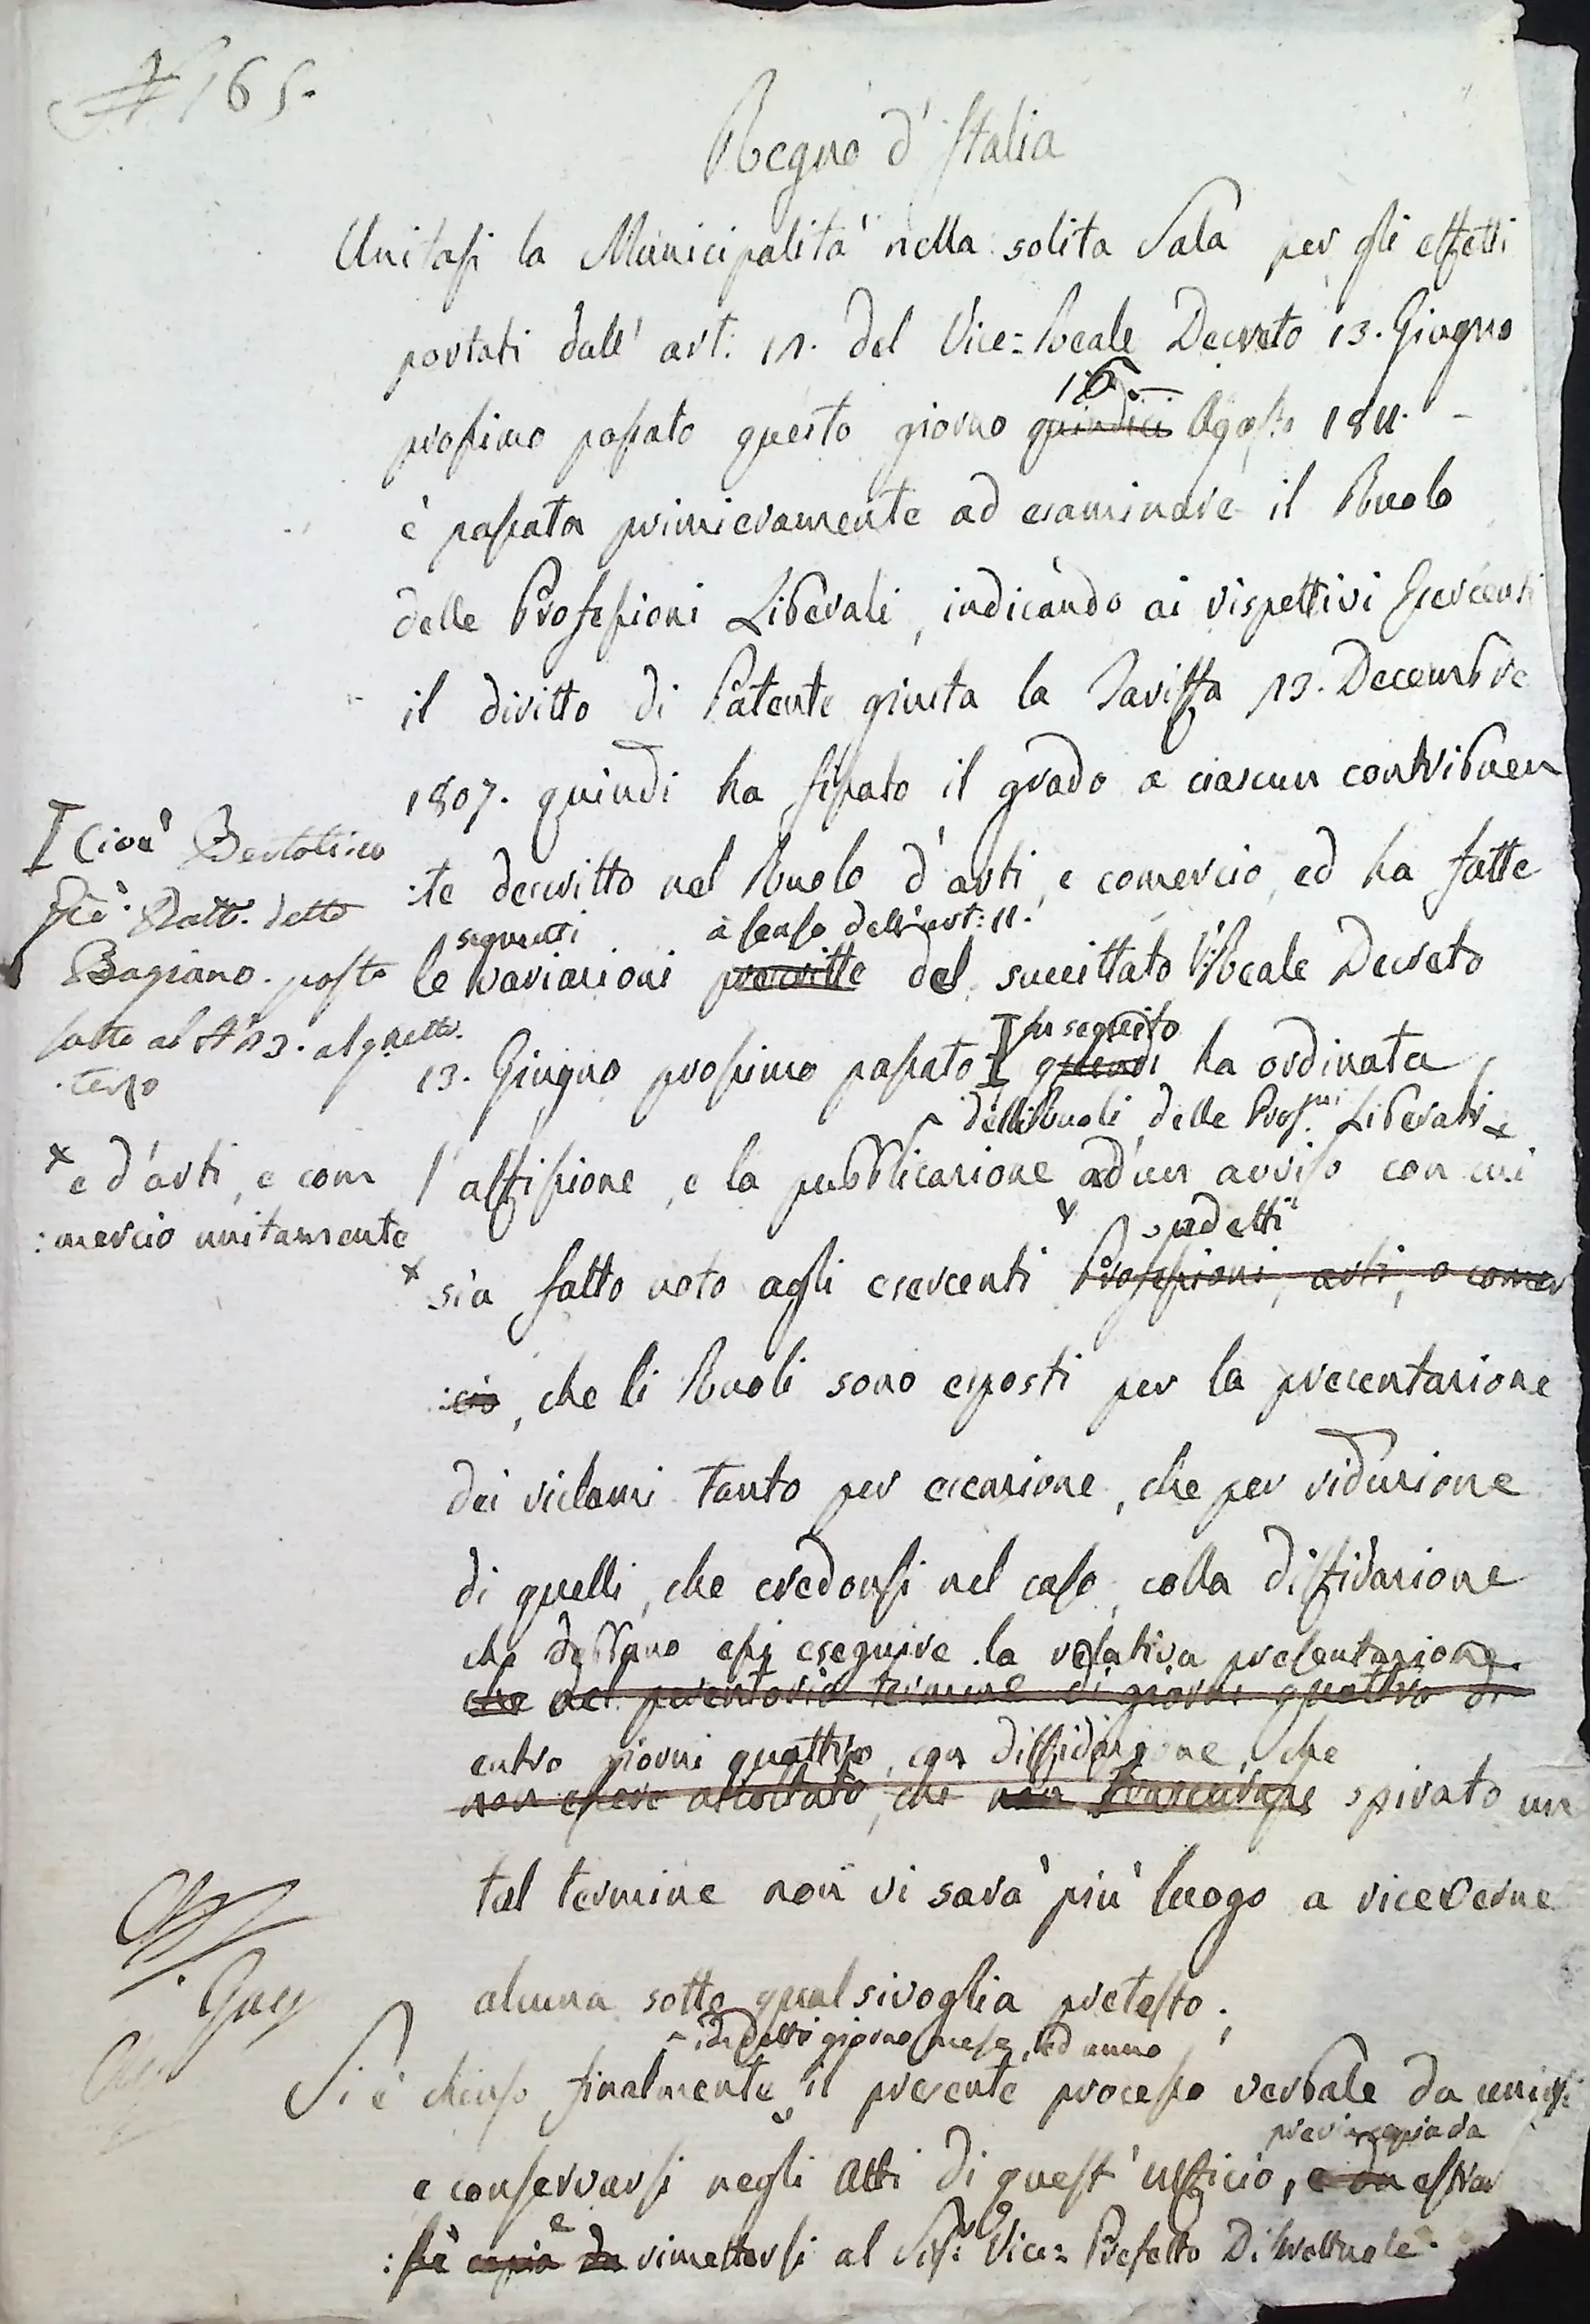 N 165.
Regno d'Italia
Unitasi la Municipalità nella solita Sala per gli effetti
portati dall' art: 11. del Vice=Reale Decreto 13. Giugno
16.
prossimo passato questo giorno quindici Agosto 1811.
è passata primieramente ad esaminare il Ruolo
delle Professioni Liberali, indicando ai rispettivi Esercenti
il diritto di Patente giusta la Tariffa 13. Decembre
1807. quindi ha fissato il grado a ciascun contribuen
:te descritto nel Ruolo d'arti, e comercio, ed ha fatte
seguenti a senso dell'art: 11.
le variazioni prescritte del succittato V. Reale Decreto
In seguito
13. Giugno prossimo passato I quindi ha ordinata
delli Ruoli delle Prof.ni Liberali x
l'affissione, e la pubblicazione ad un avviso con cui
sudetti
sia fatto noto agli esercenti Professioni, arti, o comer
:cio, che li Ruoli sono esposti per la presentazione
dei riclami tanto per esenzione, che per riduzione
di quelli, che credonsi nel caso, colla diffidazione
che debbano essi eseguire la relativa presentazione
che nel perentorio termine di giorni quattro di
entro giorni quattro, con diffidazione, che
non essere ascoltato, che non spirato un
tal termine non vi sarà più luogo a riceverne
alcuna sotto qualsivoglia pretesto;
giorno mese, ed anno
Si è chiuso finalmente il presente processo verbale da unirsi
previa copia da
e conservarsi negli Atti di quest'ufficio, e da estrar
e
:sè copia da rimettersi al Sig.r Vice=Prefetto Distrettuale.
I Cioè Bertolino
Gio: Batt. detto
Bagiano. posto
sotto al N 13. al
terzo
x e d'arti, e com
:mercio unitamente
x